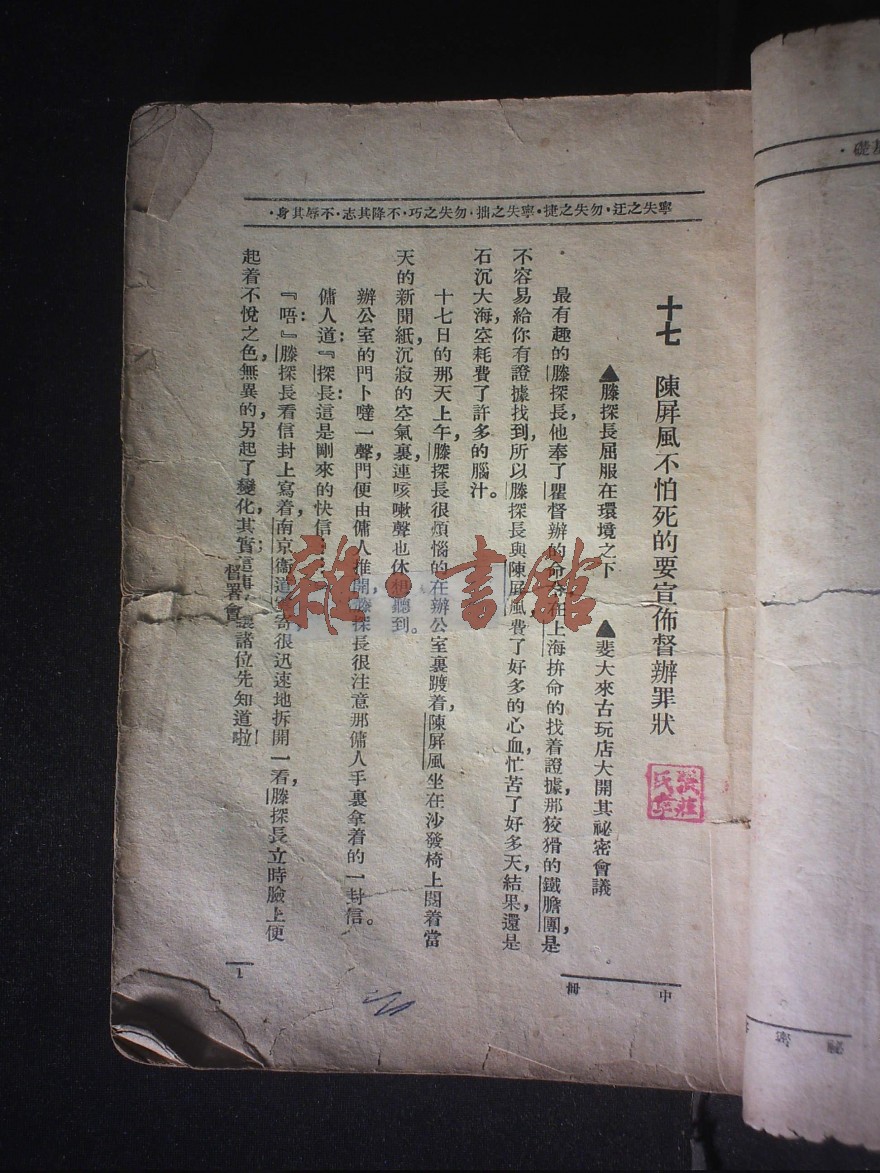 寧失之迂·勿失之捷·寧失之拙·勿失之巧·不降其志·不辱其身·
十七　陳屏風不怕死的要宣佈督辦罪狀
▲滕探長屈服在環境之下　▲斐大來古玩店大開其祕密會議
最有趣的滕探長，他奉了瞿督辦的命令在上海拚命的找着證據，那狡猾的鐵膽團，是
不容易給你有證據找到，所以滕探長與陳屏風費了好多的心血，忙苦了好多天，結果，還是
石沉大海，空耗費了許多的腦汁。
十七日的那天上午，滕探長很煩惱的在辦公室裏踱着，陳屏風坐在沙發椅上閱着當
天的新聞紙，沉寂的空氣裏，連咳嗽聲也休想聽到。
辦公室的門卜噠一聲，門便由傭人推開，滕探長很注意那傭人手裏拿着的一封信。
傭人道：『探長：這是剛來的快信
『唔：』滕探長看信封上寫着，南京衞道 寄很迅速地拆開一看，滕探長立時臉上便
起着不悅之色，無異的，另起了變化，其實這 諸位先知道啦！
督署會
1
中
冊
雜·書館
礎·
祕密